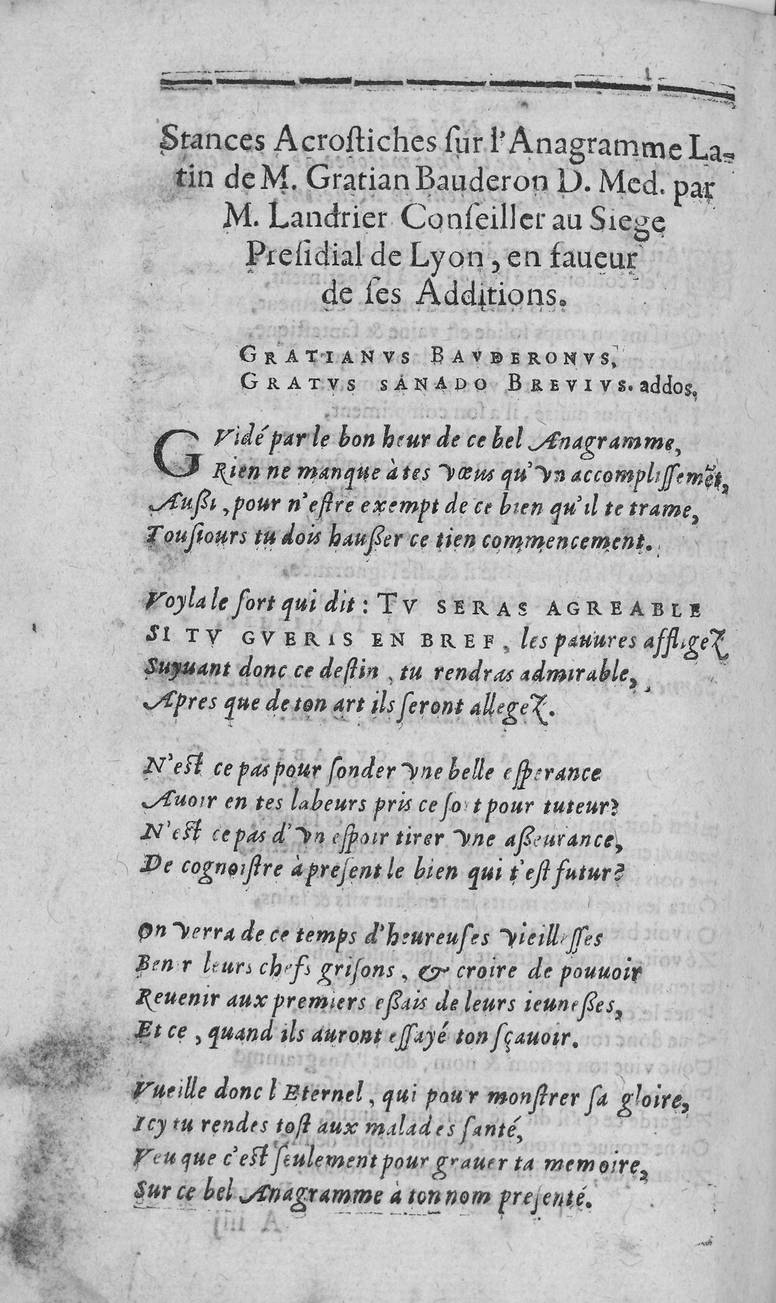 Stances Acroſtiches ſur l'Anagramme La-
tin de M. Gratian Bauderon D. Med. par
M. Landrier Conſeiller au Siege
Preſidial de Lyon, en faueur
de ſes Additions.
GRATIANVS BAVDERONVS,
GRATVS SANADO BREVIVS. addos,
GVidé par le bon heur de ce bel Anagramme,
Rien ne manque à tes vœus qu'vn accompliſſemẽt,
Außi, pour n'eſtre exempt de ce bien qu'il te trame,
Touſiours tu dois haußer ce tien commencement.
Voyla le ſort qui dit : TV SERAS AGREABLE
SI TV GVERIS EN BREF, les pauures affligez
Suyuant donc ce deſtin, tu rendras admirable,
Apres que de ton art ils ſeront allegez.
N'eſt ce pas pour ſonder vne belle eſperance
Auoir en tes labeurs pris ce ſort pour tuteur?
N'eſt ce pas d'vn eſpoir tirer vne aßeurance,
De cognoiſtre à preſent le bien qui t'eſt futur?
On verra de ce temps d'heureuſes vieilleſſes
Benir leurs chefs griſons, & croire de pouuoir
Reuenir aux premiers eßais de leurs ieuneßes,
Et ce, quand ils auront eſſayé ton ſçauoir.
Vueille donc l'Eternel, qui pour monſtrer ſa gloire,
Icy tu rendes toſt aux malades ſanté,
Veu que c'eſt ſeulement pour grauer ta memoire,
Sur ce bel Anagramme à ton nom preſenté.